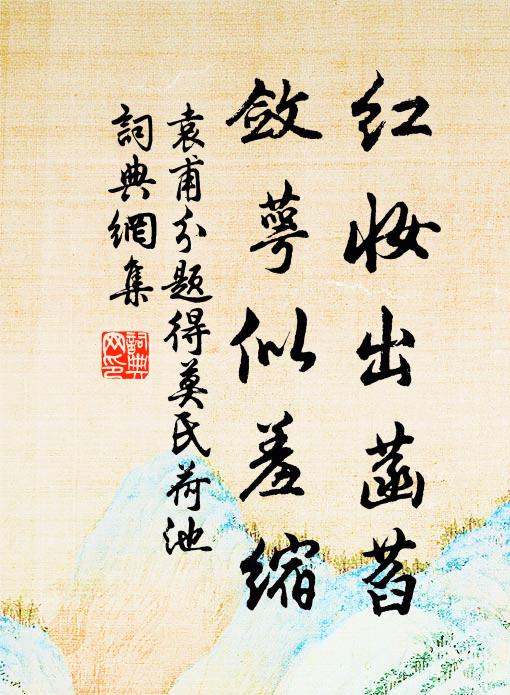 红妆出菡萏
敛萼似羞缩
袁甫分题得莫氏荷池
詞典網集
詞典
网印